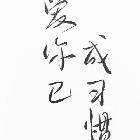 爱你已
成习惯